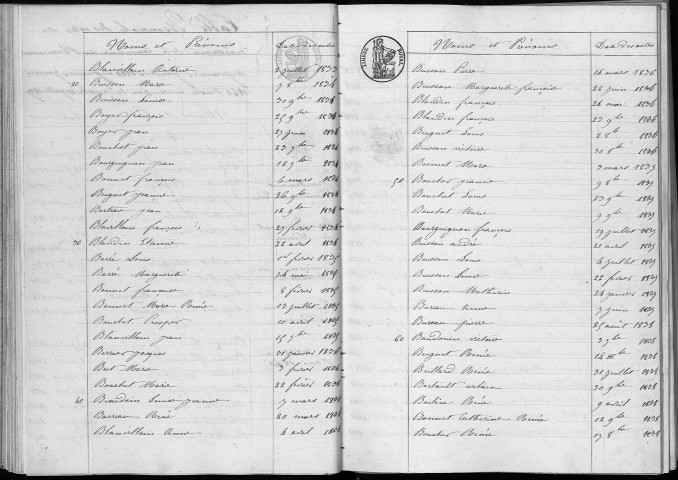 Noms et Prénoms Date des actes
Blanvillain Antoine 2 juillet 1833
Buisson Marie 7 8bre 1834
Buisson Louise 30 9bre 1834
Boyer françois 25 9bre 1834
Boyer jean 27 juin 1834
Bouchet jean 23 7bre 1834
Bourguignon jean 18 7bre 1834
Bonnet françois 6 mars 1834
Buguet jeanne 26 9bre 1834
jean 12 9bre 1834
Blanvillain françois 27 février 1834
Blandin Etienne 22 avril 1834
Barré Louis 1er février 1835
Barré Marguerite 24 mai 1835
Bonnet françoise 8 février 1835
Bonnet Marie Renée 13 juillet 1835
Bouchet Prosper 10 avril 1835
Blanvillain jean 15 7bre 1835
Bernier jacques 31 janvier 1836
Marie 3 février 1836
Bouchet Marie 22 février 1836
40 Beaudoin Louise jeanne 7 mars 1836
Barreau René 20 mars 1836
Blanvillain Anne 4 avril 1836
TIMBRE ROYAL
Noms et Prénoms Date des actes
Buisson Pierre 26 mars 1836
Buisson Marguerite françoise 28 juin 1836
Blandin françois 24 mai 1836
Blandin françois 23 9bre 1836
Buguet Louis 2 8bre 1836
Buisson victoire 30 8bre 1836
Bonnet Marie 3 mars 1837
50 Bouchet jeanne 9 8bre 1837
Bouchet Louis 23 9bre 1837
Bouchet Marie 9 9bre 1837
Bourguignon françois 29 juillet 1837
Buisson andré 21 avril 1837
Buisson Louis 4 juillet 1837
Buisson Louise 22 février 1837
Buisson Mathurin 24 janvier 1837
Bureau anne 7 juin 1837
Bureau pierre 25 août 1838
60 Baudouin victoire 3 7bre 1838
Buguet Renée 14 Xbre 1838
Renée 31 juillet 1838
30 9bre 1838
René 9 avril 1838
Bonnet Catherine Renée 12 9bre 1838
Boucher Renée 17 8bre 1838